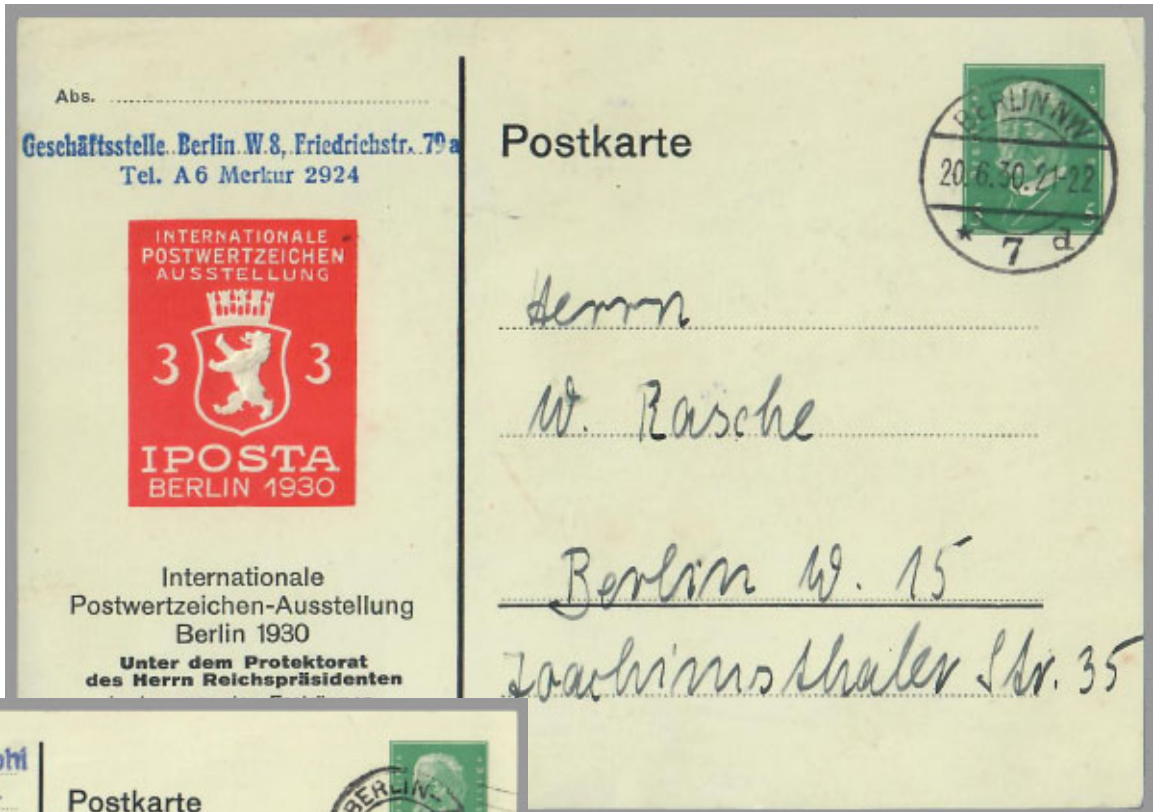 Abs.
Geschäftsstelle Berlin W.8, Friedrichstr. 79a
Tel. A6 Merkur 2924
INTERNATIONALE
POSTWERTZEICHEN
AUSSTELLUNG
3 3
IPOSTA
BERLIN 1930
Internationale
Postwertzeichen-Ausstellung
Berlin 1930
Unter dem Protektorat
des Herrn Reichspräsidenten
Postkarte
BERLIN NW
20.6.30.21-22
* 7 d
5 5
Herrn
W. Rasche
Berlin W. 15
Joachimsthaler Str. 35
Postkarte
BERLIN